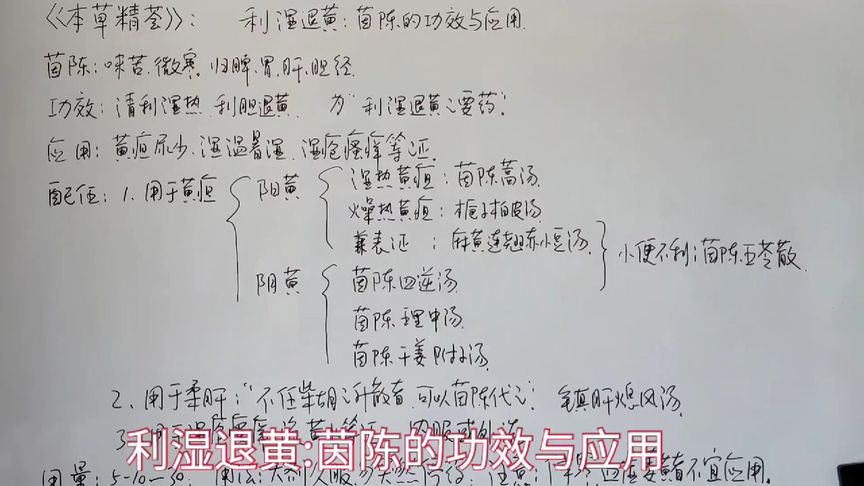 《《本草精荟》》: 利湿退黄:茵陈的功效与应用.
茵陈:味苦.微寒.归脾.胃.肝.胆经.
功效:清利湿热.利胆退黄. 为"利湿退黄之要药".
应用:黄疸尿少.湿温暑湿.湿疮瘙痒等证.
配伍:1.用于黄疸 阳黄 湿热黄疸:茵陈蒿汤.
燥热黄疸:栀子柏皮汤.
兼表证:麻黄连翘赤小豆汤. 小便不利:茵陈五苓散.
阴黄 茵陈四逆汤.
茵陈理中汤.
茵陈干姜附子汤.
2.用于柔肝:"不任柴胡之升散者,可以茵陈代之". 镇肝熄风汤.
3.用于
利湿退黄:茵陈的功效与应用
用量:5-10-30. 用法: 血虚萎黄者不宜应用.